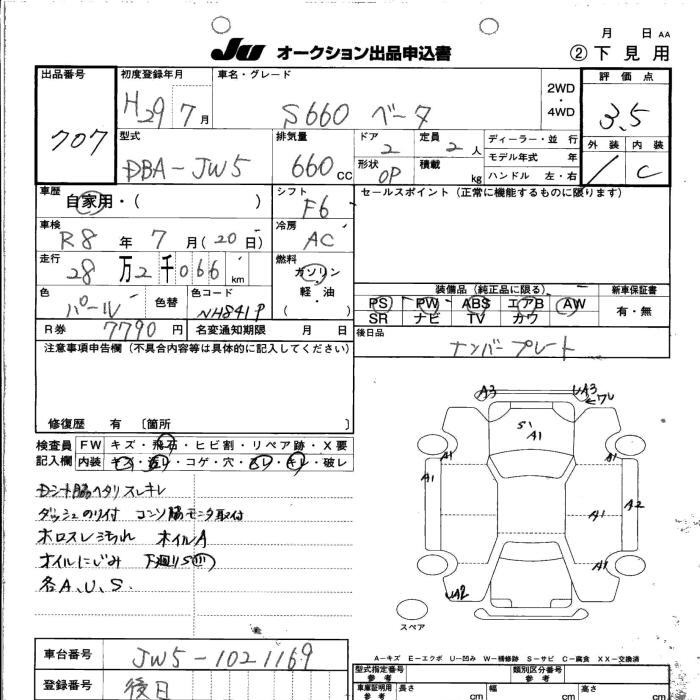 月 日 AA
JU オークション出品申込書 ②下見用
出品番号 707
初度登録年月 H29年7月
車名・グレード S660 ベータ
2WD・4WD
評価点 3.5
外装 内装 C
型式 DBA-JW5
排気量 660cc
ドア 2 定員 2人
形状 OP 積載 kg
ディーラー・並行
モデル年式 年
ハンドル 左・右
車歴 自家用・( )
シフト F6
セールスポイント(正常に機能するものに限ります)
車検 R8年7月(20日)
冷房 AC
走行 28万2千066km
燃料 ガソリン 軽・油 ( )
色 パール 色替 色コード NH841P
装備品(純正品に限る) 新車保証書
PS PW ABS エアB AW 有・無
SR ナビ TV カワ
R券 7790円 名変通知期限 月 日
後日品 ナンバープレート
注意事項申告欄(不具合内容等は具体的に記入してください)
修復歴 有 〔箇所 〕
検査員記入欄
FW キズ・飛石・ヒビ割・リペア跡・X要
内装 キズ・汚レ・コゲ・穴・スレ・キレ・破レ
Dシート脇ヘタリスレキレ
ダッシュのり付 コンソ脇モニタ取付
ホロスレ汚れ ホイルA
オイルにじみ 下廻りS
各A、U、S.
A3 UA3
S A1
A1 A1
A1 A1 A2
UA2 A1
スペア
A-キズ E-エクボ U-凹み W-補修跡 S-サビ C-腐食 XX-交換済
車台番号 JW5-1021169
登録番号 後日
型式指定番号 参考 類別区分番号 参考
車庫証明用 参考 長さ cm 幅 cm 高さ cm